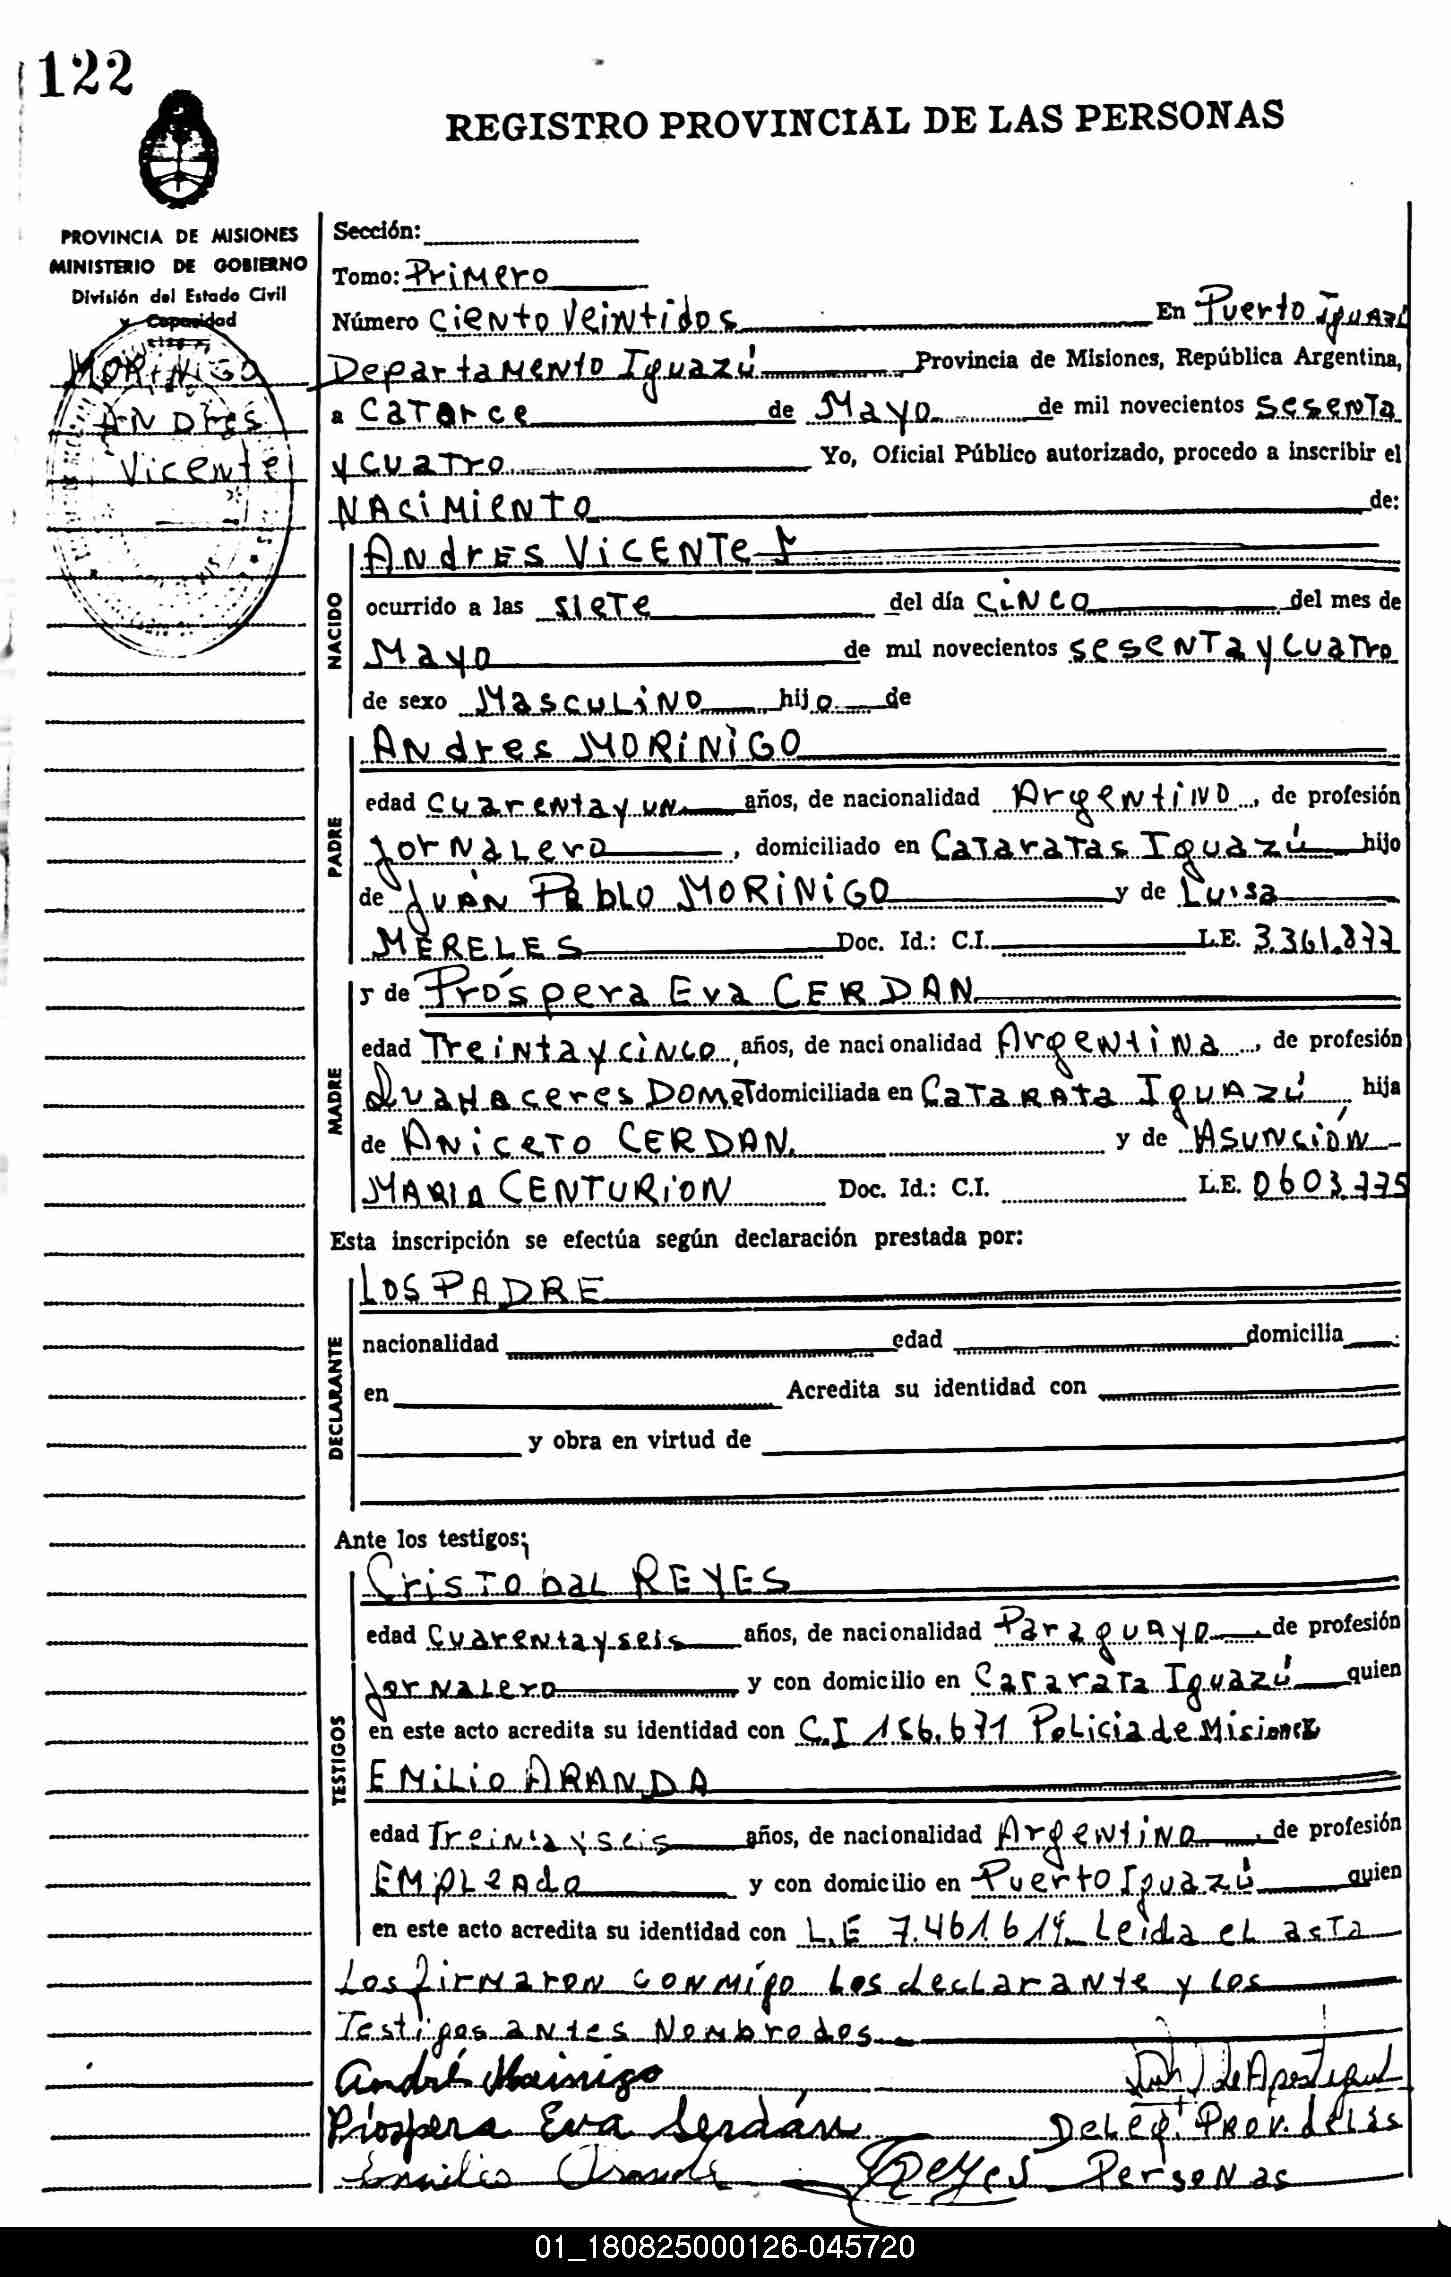 122
REGISTRO PROVINCIAL DE LAS PERSONAS
PROVINCIA DE MISIONES
MINISTERIO DE GOBIERNO
División del Estado Civil
y Capacidad
MORINIGO
ANDres
Vicente
Sección:
Tomo: Primero
Número Ciento Veintidos En Puerto Iguazú
Departamento Iguazú Provincia de Misiones, República Argentina,
a Catorce de Mayo de mil novecientos sesenta
y cuatro Yo, Oficial Público autorizado, procedo a inscribir el
NACIMIENTO de:
NACIDO
ANDRES VICENTE
ocurrido a las siete del día CINCO del mes de
Mayo de mil novecientos sesenta y cuatro
de sexo Masculino hijo de
PADRE
Andres MORINIGO
edad cuarenta y un años, de nacionalidad Argentino, de profesión
Jornalero, domiciliado en Cataratas Iguazú hijo
de Juan Pablo MORINIGO y de Luisa
MERELES Doc. Id.: C.I. L.E. 3.361.877
MADRE
y de Próspera Eva CERDAN
edad Treinta y cinco, años, de nacionalidad Argentina, de profesión
Quahaceres Domet domiciliada en Catarata Iguazú hija
de Aniceto CERDAN. y de ASUNCIÓN
MARIA CENTURION Doc. Id.: C.I. L.E. 0603.775
Esta inscripción se efectúa según declaración prestada por:
DECLARANTE
LOS PADRE
nacionalidad edad domicilia
en Acredita su identidad con
y obra en virtud de
Ante los testigos;
TESTIGOS
Cristobal REYES
edad cuarenta y seis años, de nacionalidad Paraguayo, de profesión
Jornalero y con domicilio en Catarata Iguazú quien
en este acto acredita su identidad con C.I 156.671 Policia de Misiones
EMILIO ARANDA
edad Treinta y seis años, de nacionalidad Argentino, de profesión
EMpleado y con domicilio en Puerto Iguazú quien
en este acto acredita su identidad con L.E 7.461.614. Leida el acta
Los firmaron conmígo los declarante y los
Testigos antes Nombrados.
André Morinigo
Próspera Eva Serdán Deleg. Prov. de las
Emilio Aranda Reyes Personas
01_180825000126-045720